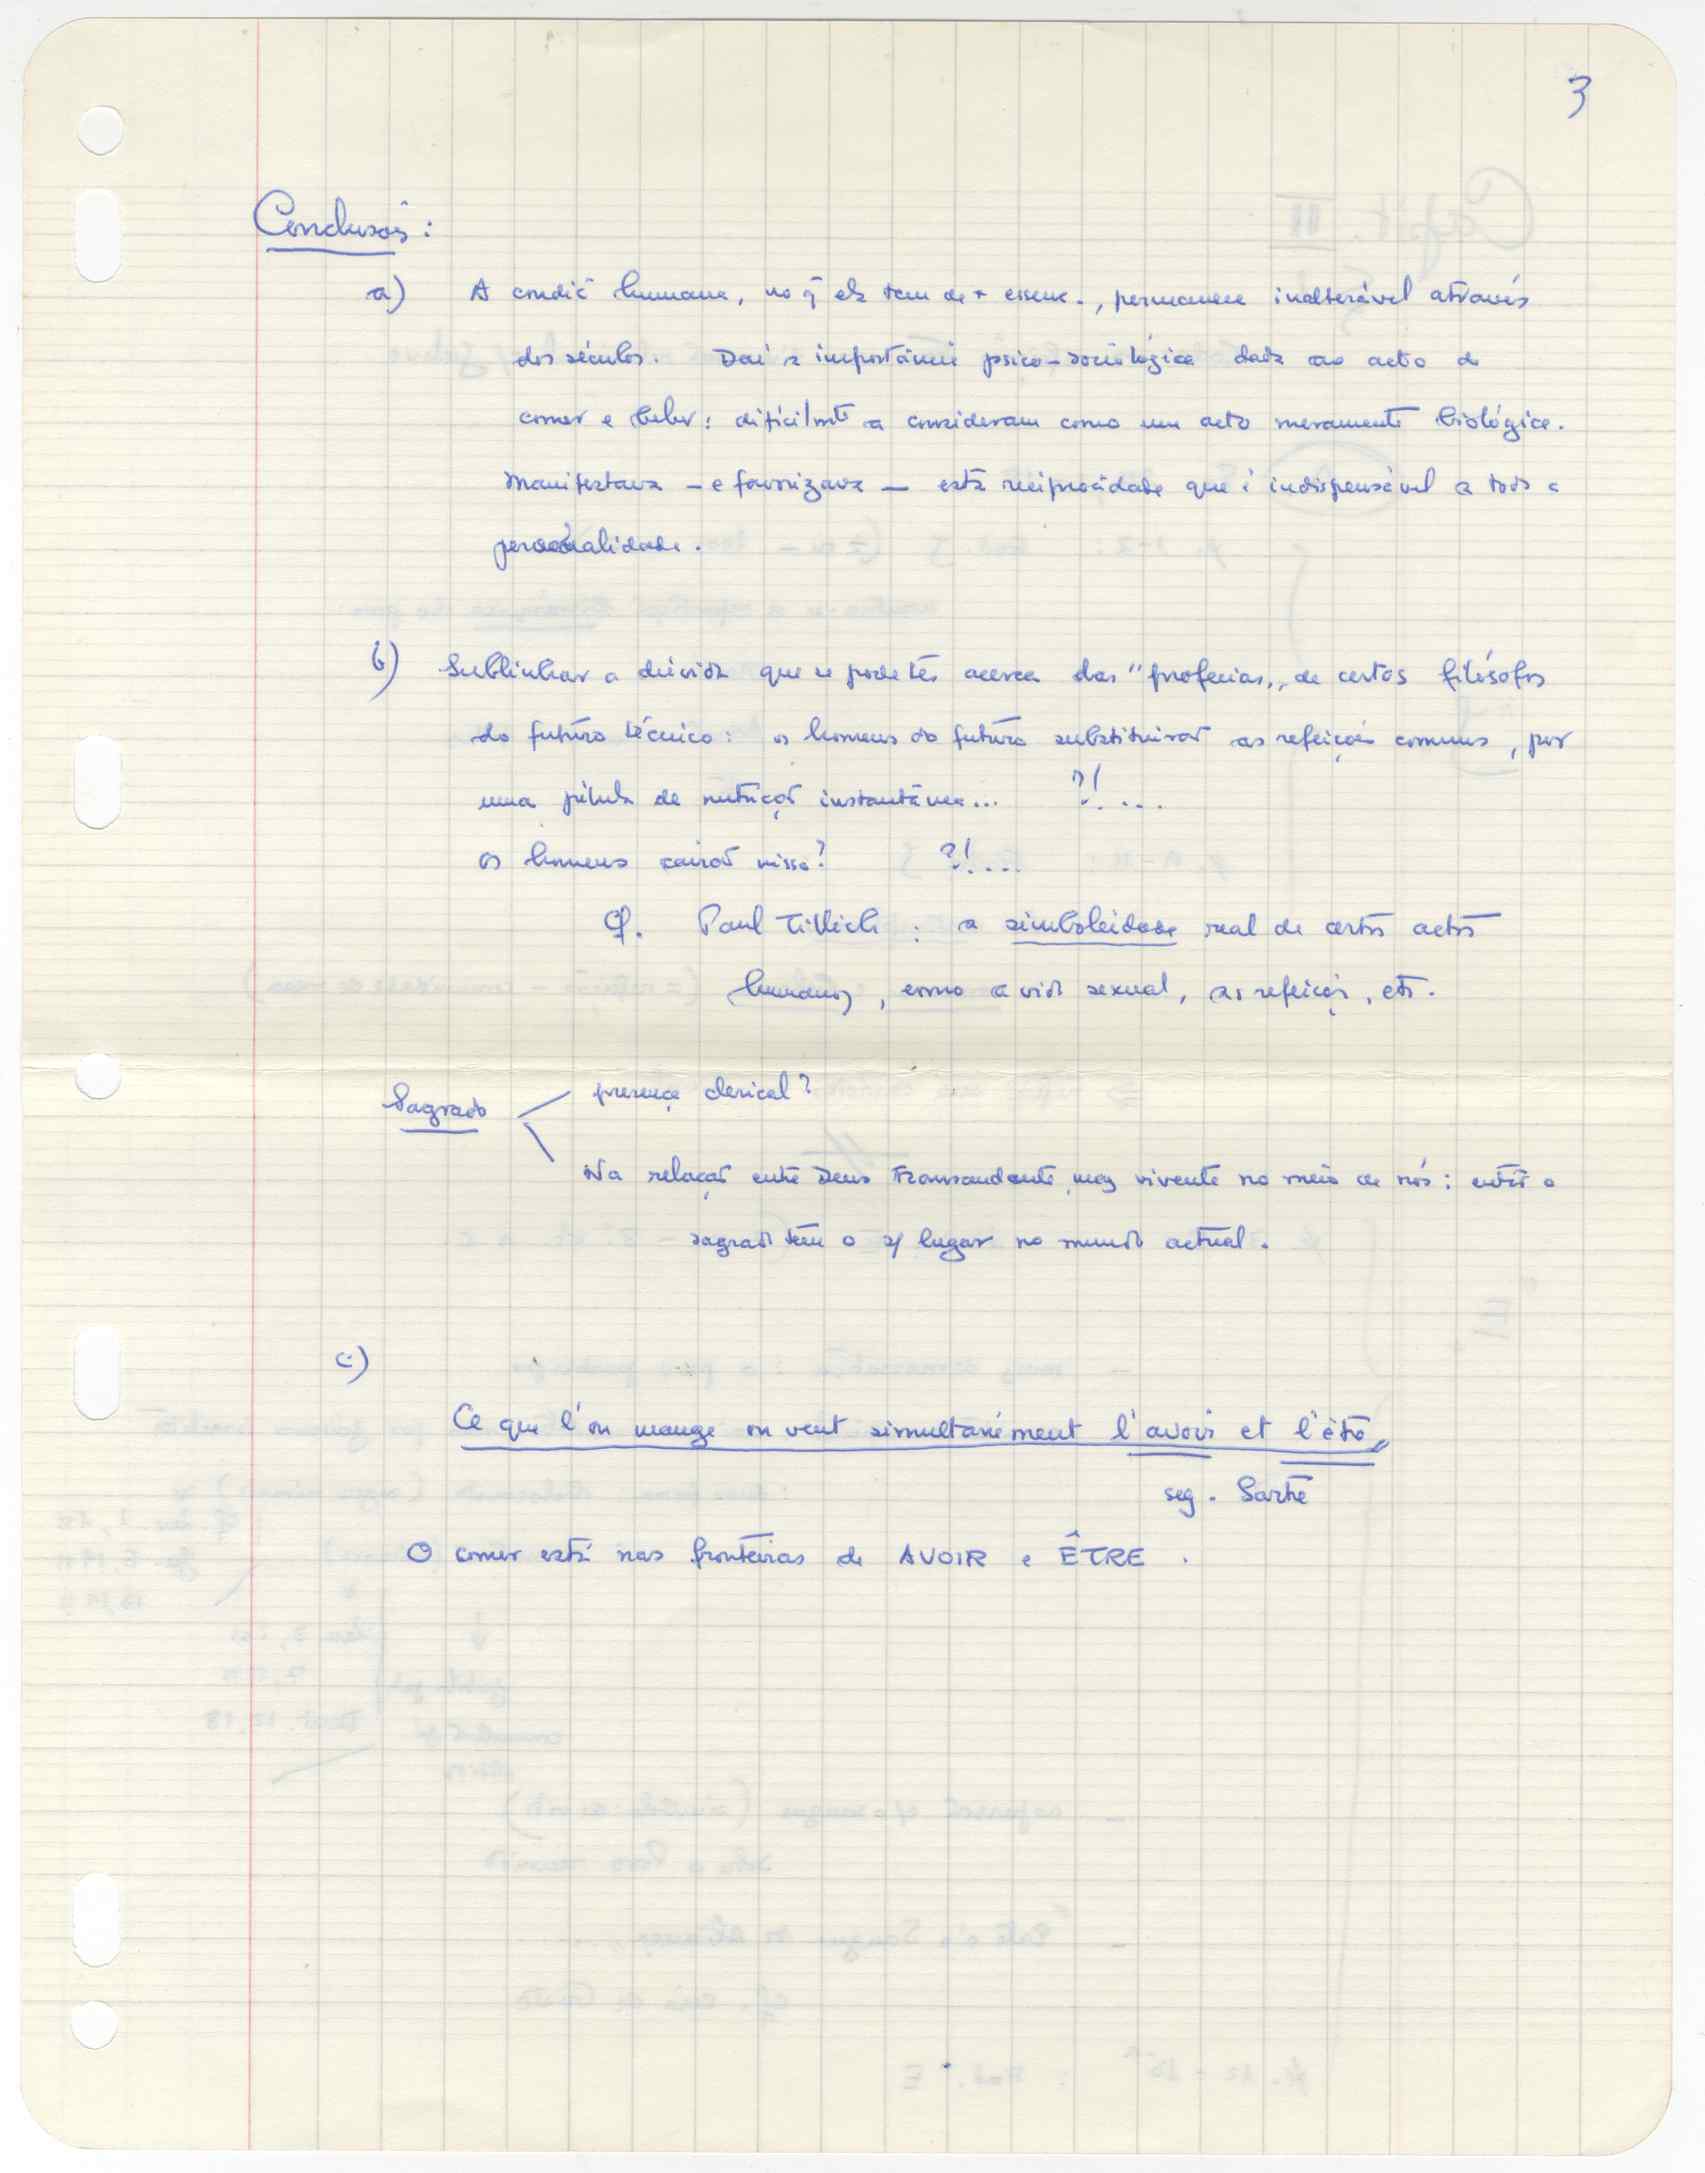 3
Conclusão:
a) A condiç humana, no q̃ ela tem de + essenc., permanece inalterável através
dos séculos. Daí a importância psico-sociológica dada ao acto de
comer e beber: dificilmte a consideram como um acto meramente biológico.
Manifestava - e favorizava - esta reciprocidade que é indispensável a toda a
personalidade.
b) Sublinhar a dúvida que se pode ter acerca das "profecias" de certos filósofos
do futuro técnico: os homens do futuro substituirão as refeições comuns, por
uma pílula de nutrição instantânea... ?!....
Os homens cairão nisso? ?!....
Cf. Paul Tillich: a simboleidade real de certos actos
humanos, como a vida sexual, as refeições, etc.
Sagrado
presença clerical?
Na relação entre Deus Transcendente, mas vivente no meio de nós: então o
sagrado tem o s/ lugar no mundo actual.
c)
Ce que l'on mange on veut simultanément l'avoir et l'être"
seg. Sartre
O comer está nas fronteiras de AVOIR e ÊTRE.